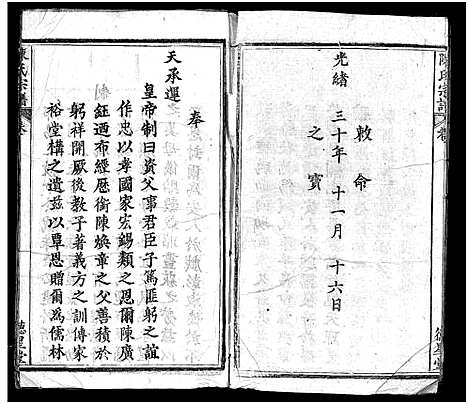 陳氏宗譜
卷
敕命
光緒三十年十一月十六日
之寶
奉
天承運
皇帝制曰資父事君臣子篤匪躬之誼
作忠以孝國家宏錫類之恩爾陳廣
鈺迺布經歷銜陳煥章之父善積於
躬祥開厥後教子著義方之訓傳家
裕堂構之遺茲以覃恩贈爾為儒林
陳氏宗譜
卷
德星堂
德星堂